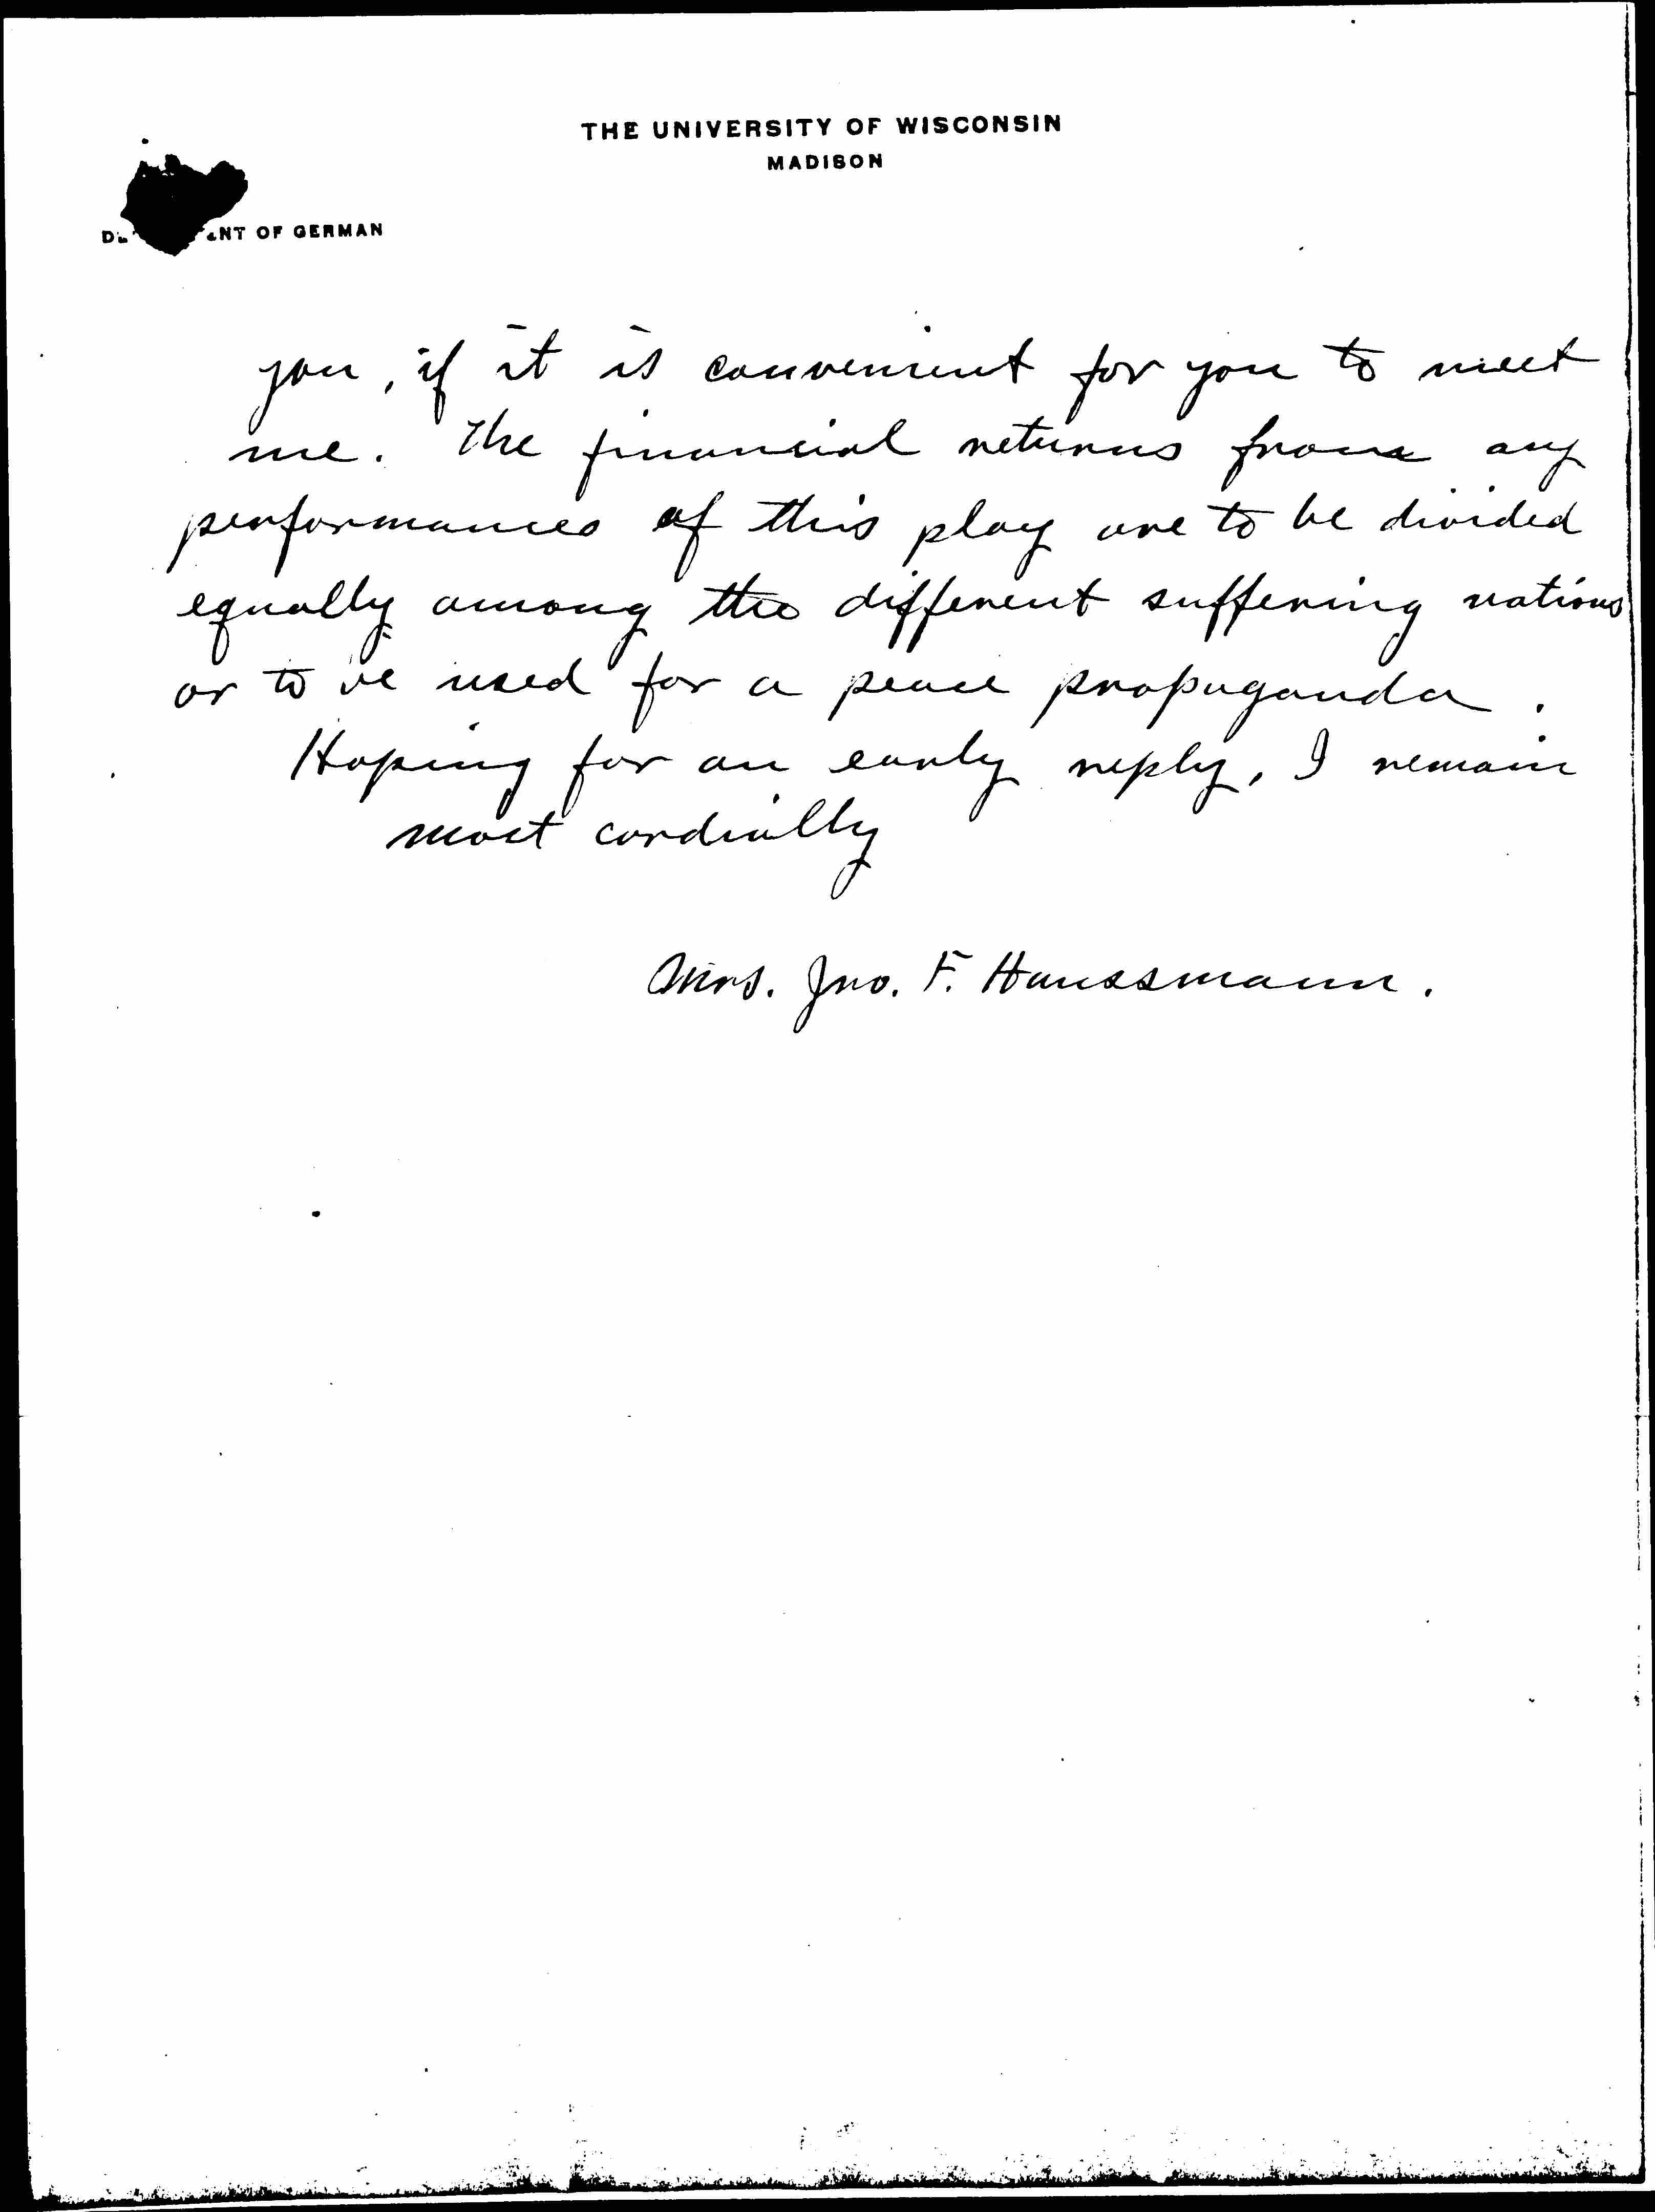 THE UNIVERSITY OF WISCONSIN
MADISON
OF GERMAN
you, if it is convenient for you to meet
me. The financial returns from any
performances of this play are to be divided
equally among the different suffering nations
or to be used for a peace propaganda.
Hoping for an early reply, I remain
most cordially
Mrs. Jno. F. Haussmann.